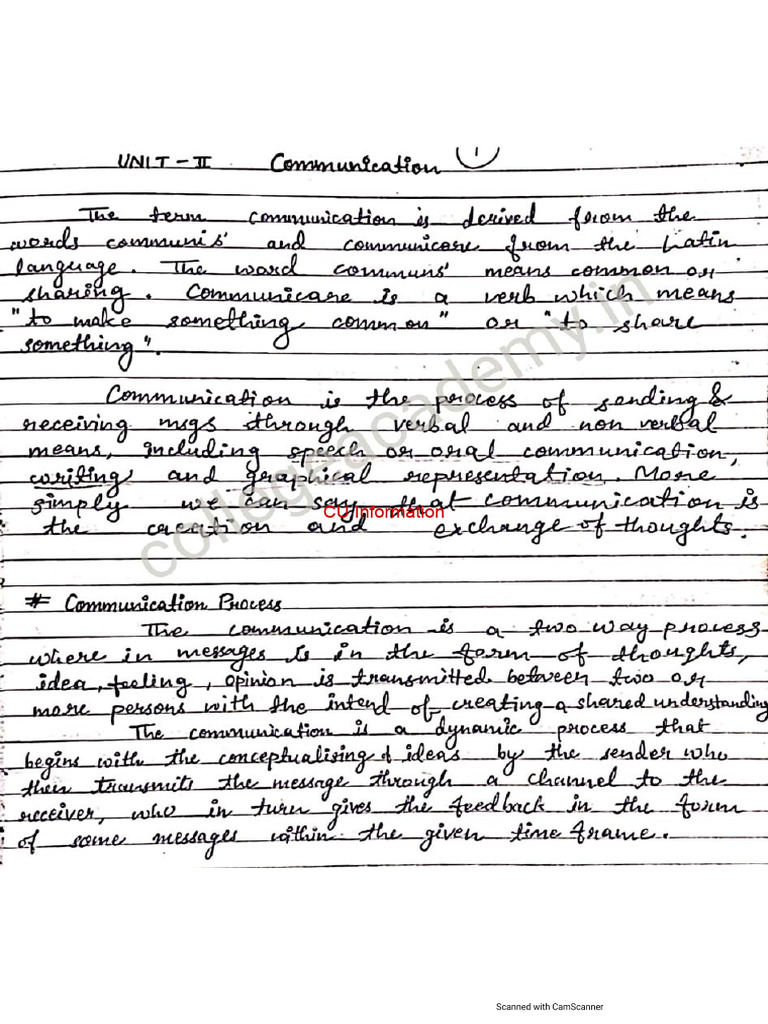 UNIT - II Communication 1
The term communication is derived from the
words communis' and communicare from the Latin
language. The word communs' means common or
sharing. Communicare is a verb which means
"to make something common" or "to share
something".
Communication is the process of sending &
receiving msgs through verbal and non verbal
means, including speech or oral communication,
writing and graphical representation. More
simply we can say that communication is
CU Information
the creation and exchange of thoughts.
collegeacademy.in
# Communication Process
The communication is a two way process
where in messages is in the form of thoughts,
idea, feeling, opinion is transmitted between two or
more persons with the intend of creating a shared understanding
The communication is a dynamic process that
begins with the conceptualising of ideas by the sender who
then transmits the message through a channel to the
receiver, who in turn gives the feedback in the form
of some messages within the given time frame.
Scanned with CamScanner